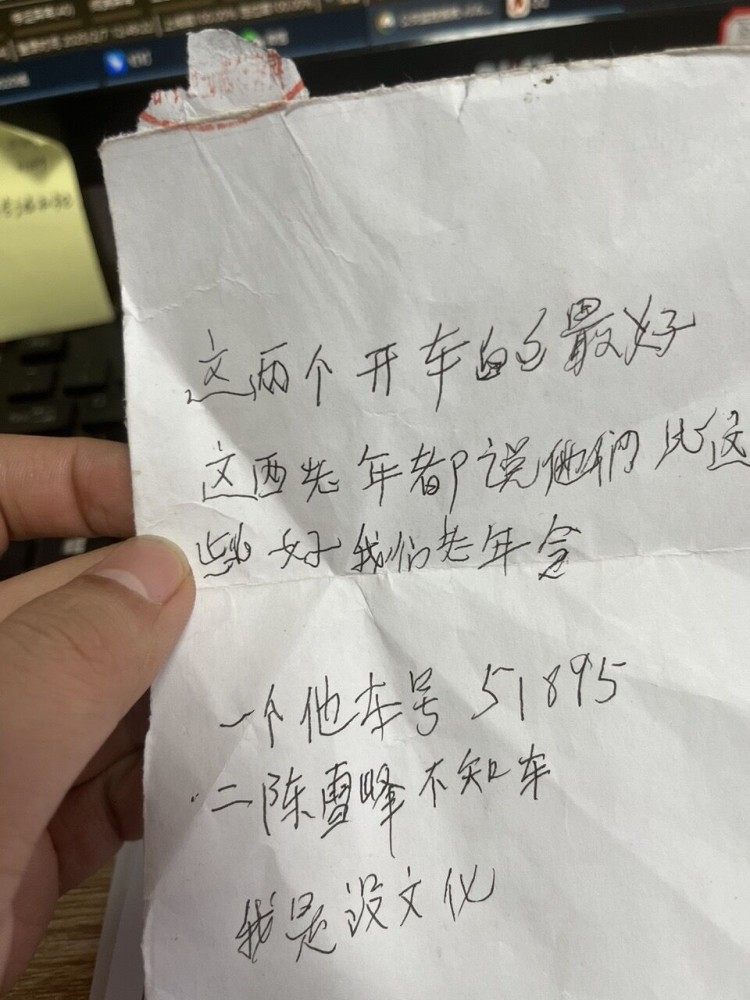 这两个开车的最好
这西老年都说他们比这
些好我们老年令
一个他车号 51895
二陈雪峰不知车
我是没文化